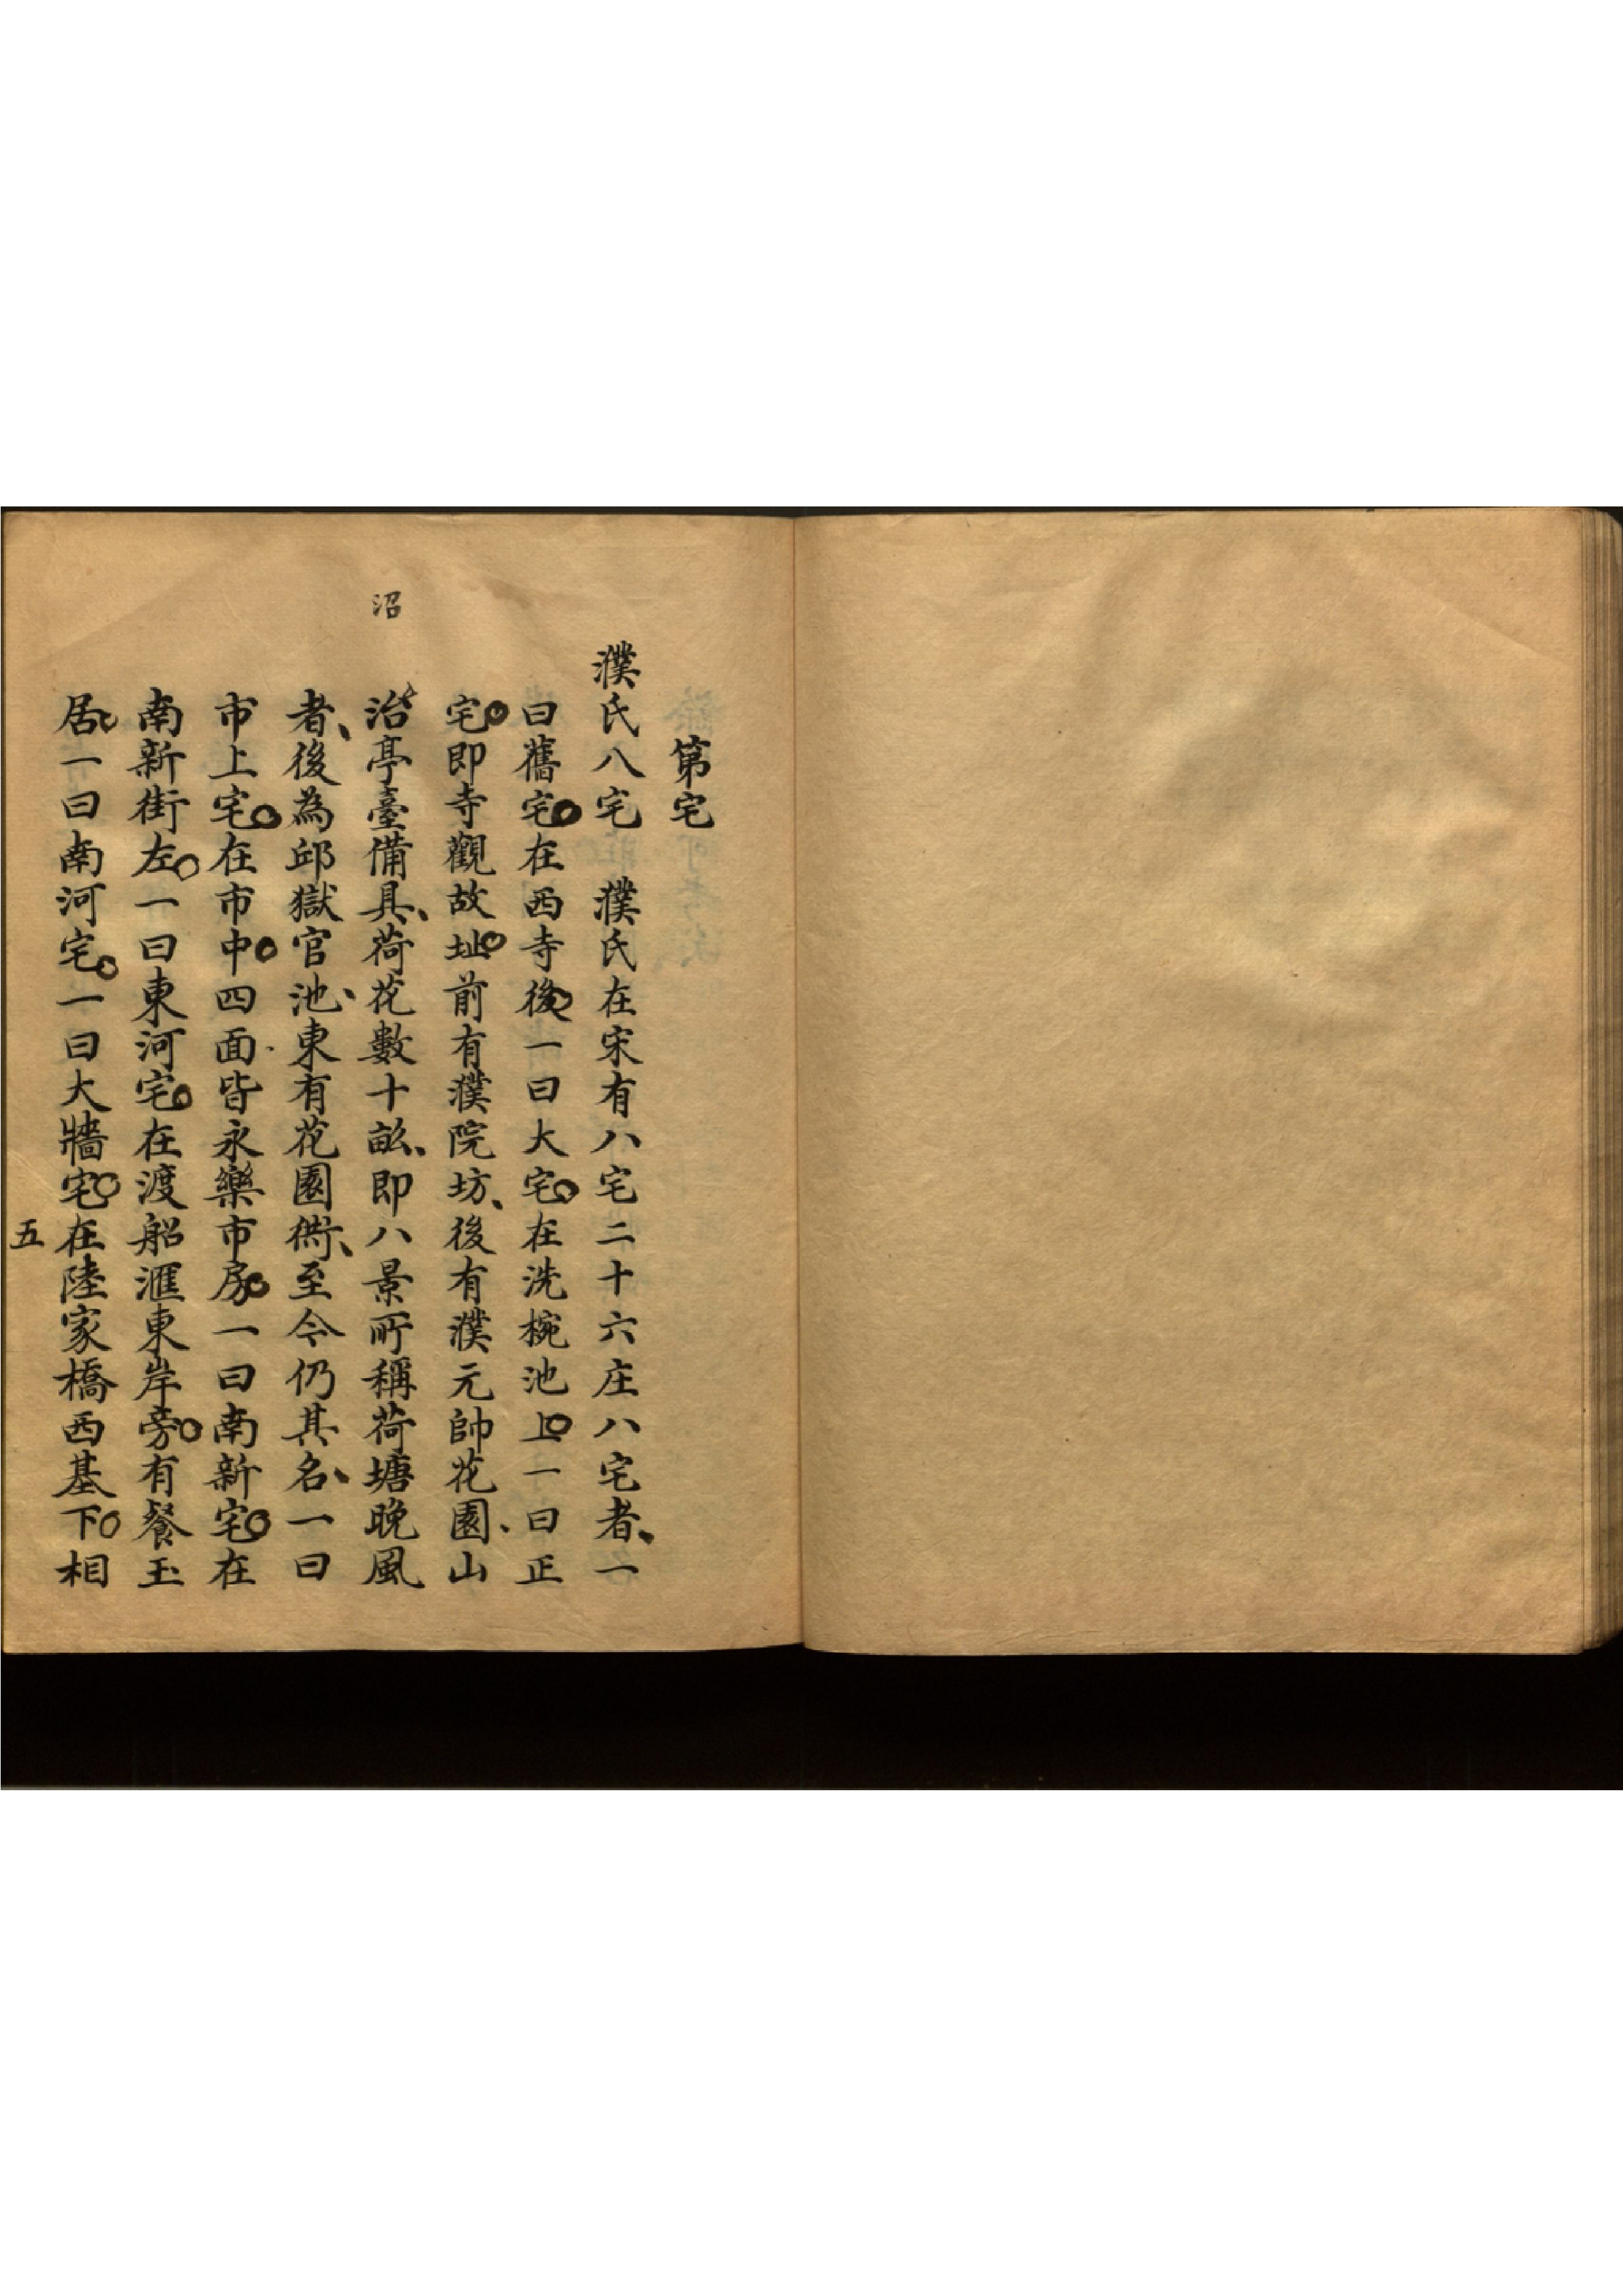 第宅
濮氏八宅　濮氏在宋有八宅二十六庄八宅者、一
曰舊宅○在西寺後○一曰大宅○在洗椀池上○一曰正
宅○即寺觀故址○前有濮院坊、後有濮元帥花園、山
沼
治亭臺備具、荷花數十畝、即八景所稱荷塘晚風
者、後為邱獄官池、東有花園衖、至今仍其名、一曰
市上宅○在市中○四面皆永樂市房○一曰南新宅○在
南新街左○一曰東河宅○在渡船滙東岸旁○有餐玉
居○一曰南河宅○一曰大牆宅○在陸家橋西基下○相
五